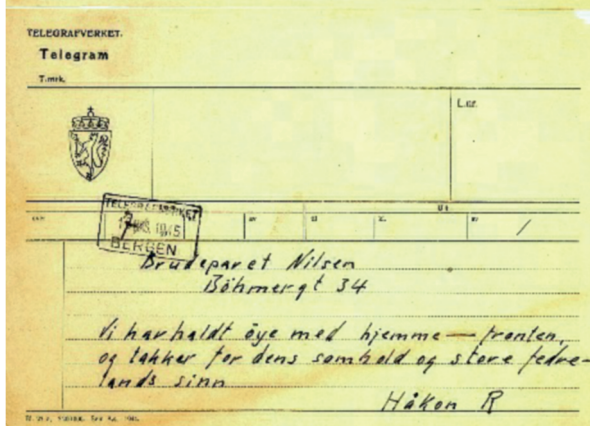 TELEGRAFVERKET.
Telegram
T.mrk.
L.nr.
Ut
BERGEN
Brudeparet Nilsen
Böhmergt 34
Vi har haldt öye med hjemme — fronten,
og takker for dens samhold og store fedre-
lands sinn
Håkon R